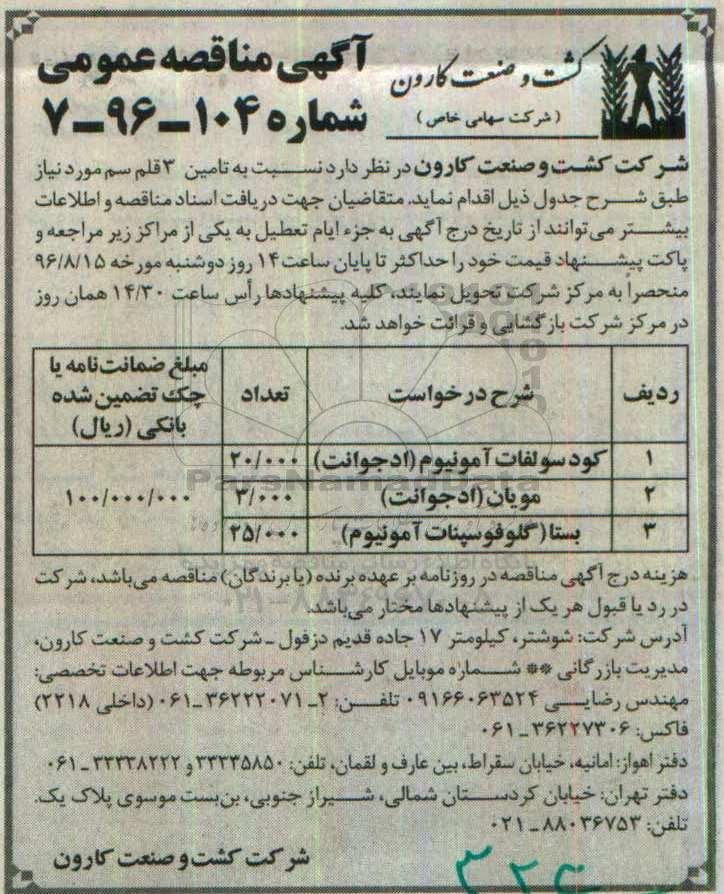 کشت و صنعت کارون
( شرکت سهامی خاص )
آگهی مناقصه عمومی
شماره ۱۰۴-۹۶-۷
شرکت کشت و صنعت کارون در نظر دارد نسبت به تامین ۳ قلم سم مورد نیاز
طبق شرح جدول ذیل اقدام نماید، متقاضیان جهت دریافت اسناد مناقصه و اطلاعات
بیشتر می‌توانند از تاریخ درج آگهی به جزء ایام تعطیل به یکی از مراکز زیر مراجعه و
پاکت پیشنهاد قیمت خود را حداکثر تا پایان ساعت ۱۴ روز دوشنبه مورخه ۹۶/۸/۱۵
منحصراً به مرکز شرکت تحویل نمایند، کلیه پیشنهادها رأس ساعت ۱۴/۳۰ همان روز
در مرکز شرکت بازگشایی و قرائت خواهد شد.
ردیف شرح درخواست تعداد مبلغ ضمانت‌نامه یا
چک تضمین شده
بانکی (ریال)
۱ کود سولفات آمونیوم (ادجوانت) ۲۰/۰۰۰
۲ مویان (ادجوانت) ۳/۰۰۰ ۱۰۰/۰۰۰/۰۰۰
۳ بستا (گلوفوسینات آمونیوم) ۲۵/۰۰۰
هزینه درج آگهی مناقصه در روزنامه بر عهده برنده (یا برندگان) مناقصه می‌باشد، شرکت
در رد یا قبول هر یک از پیشنهادها مختار می‌باشد.
آدرس شرکت: شوشتر، کیلومتر ۱۷ جاده قدیم دزفول - شرکت کشت و صنعت کارون،
مدیریت بازرگانی ** شماره موبایل کارشناس مربوطه جهت اطلاعات تخصصی:
مهندس رضایی ۰۹۱۶۶۰۶۳۵۲۴ تلفن: ۲-۳۶۲۲۲۰۷۱-۰۶۱ (داخلی ۲۲۱۸)
فاکس: ۳۶۲۲۷۳۰۶-۰۶۱
دفتر اهواز: امانیه، خیابان سقراط، بین عارف و لقمان، تلفن: ۳۳۳۳۵۸۵۰ و ۳۳۳۳۸۲۲۲-۰۶۱
دفتر تهران: خیابان کردستان شمالی، شیراز جنوبی، بن‌بست موسوی پلاک یک.
تلفن: ۸۸۰۳۶۷۵۳-۰۲۱
شرکت کشت و صنعت کارون
ParsNamadData